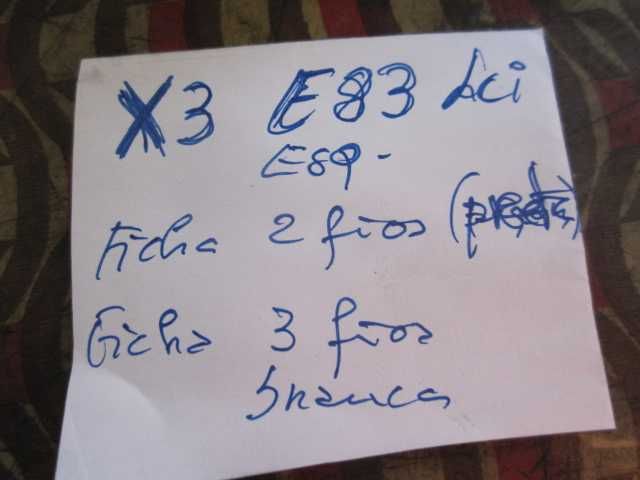 X3 E83 Lci
E89-
Ficha 2 fios
Ficha 3 fios
branca